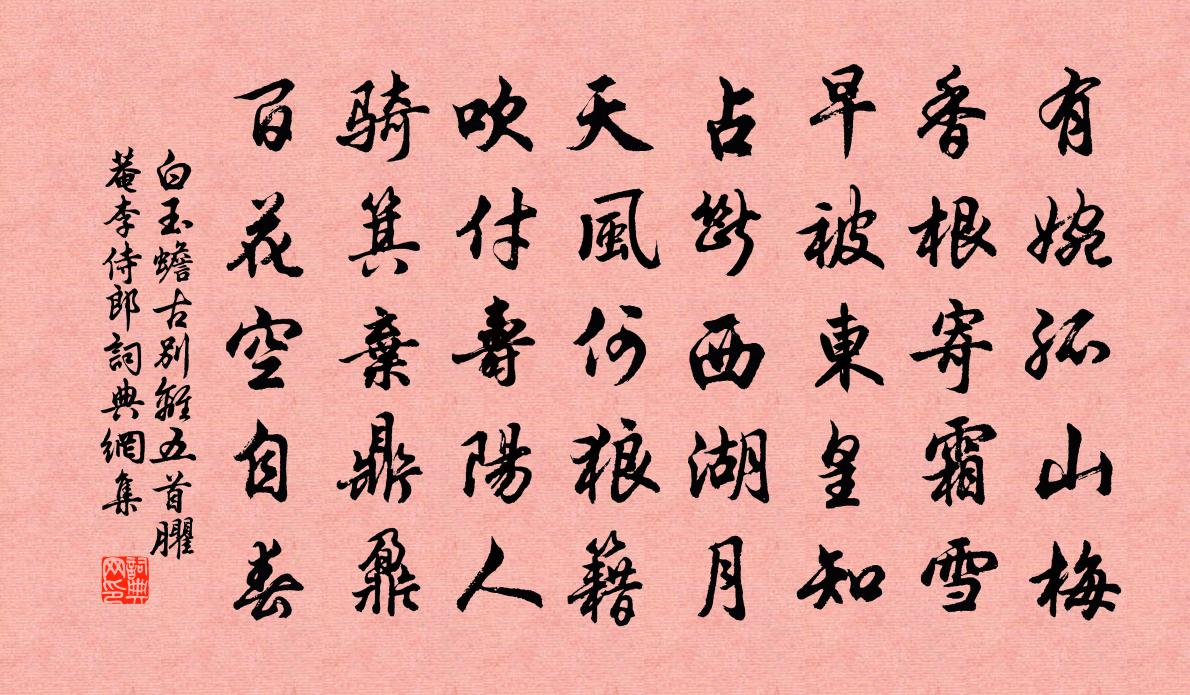 有婉孤山梅
香根寄霜雪
早被東皇知
占斷西湖月
天風何狼籍
吹付壽陽人
騎箕棄鼎鼐
百花空自春
白玉蟾古別離五首臞
菴李侍郎詞典網集
詞典
网印